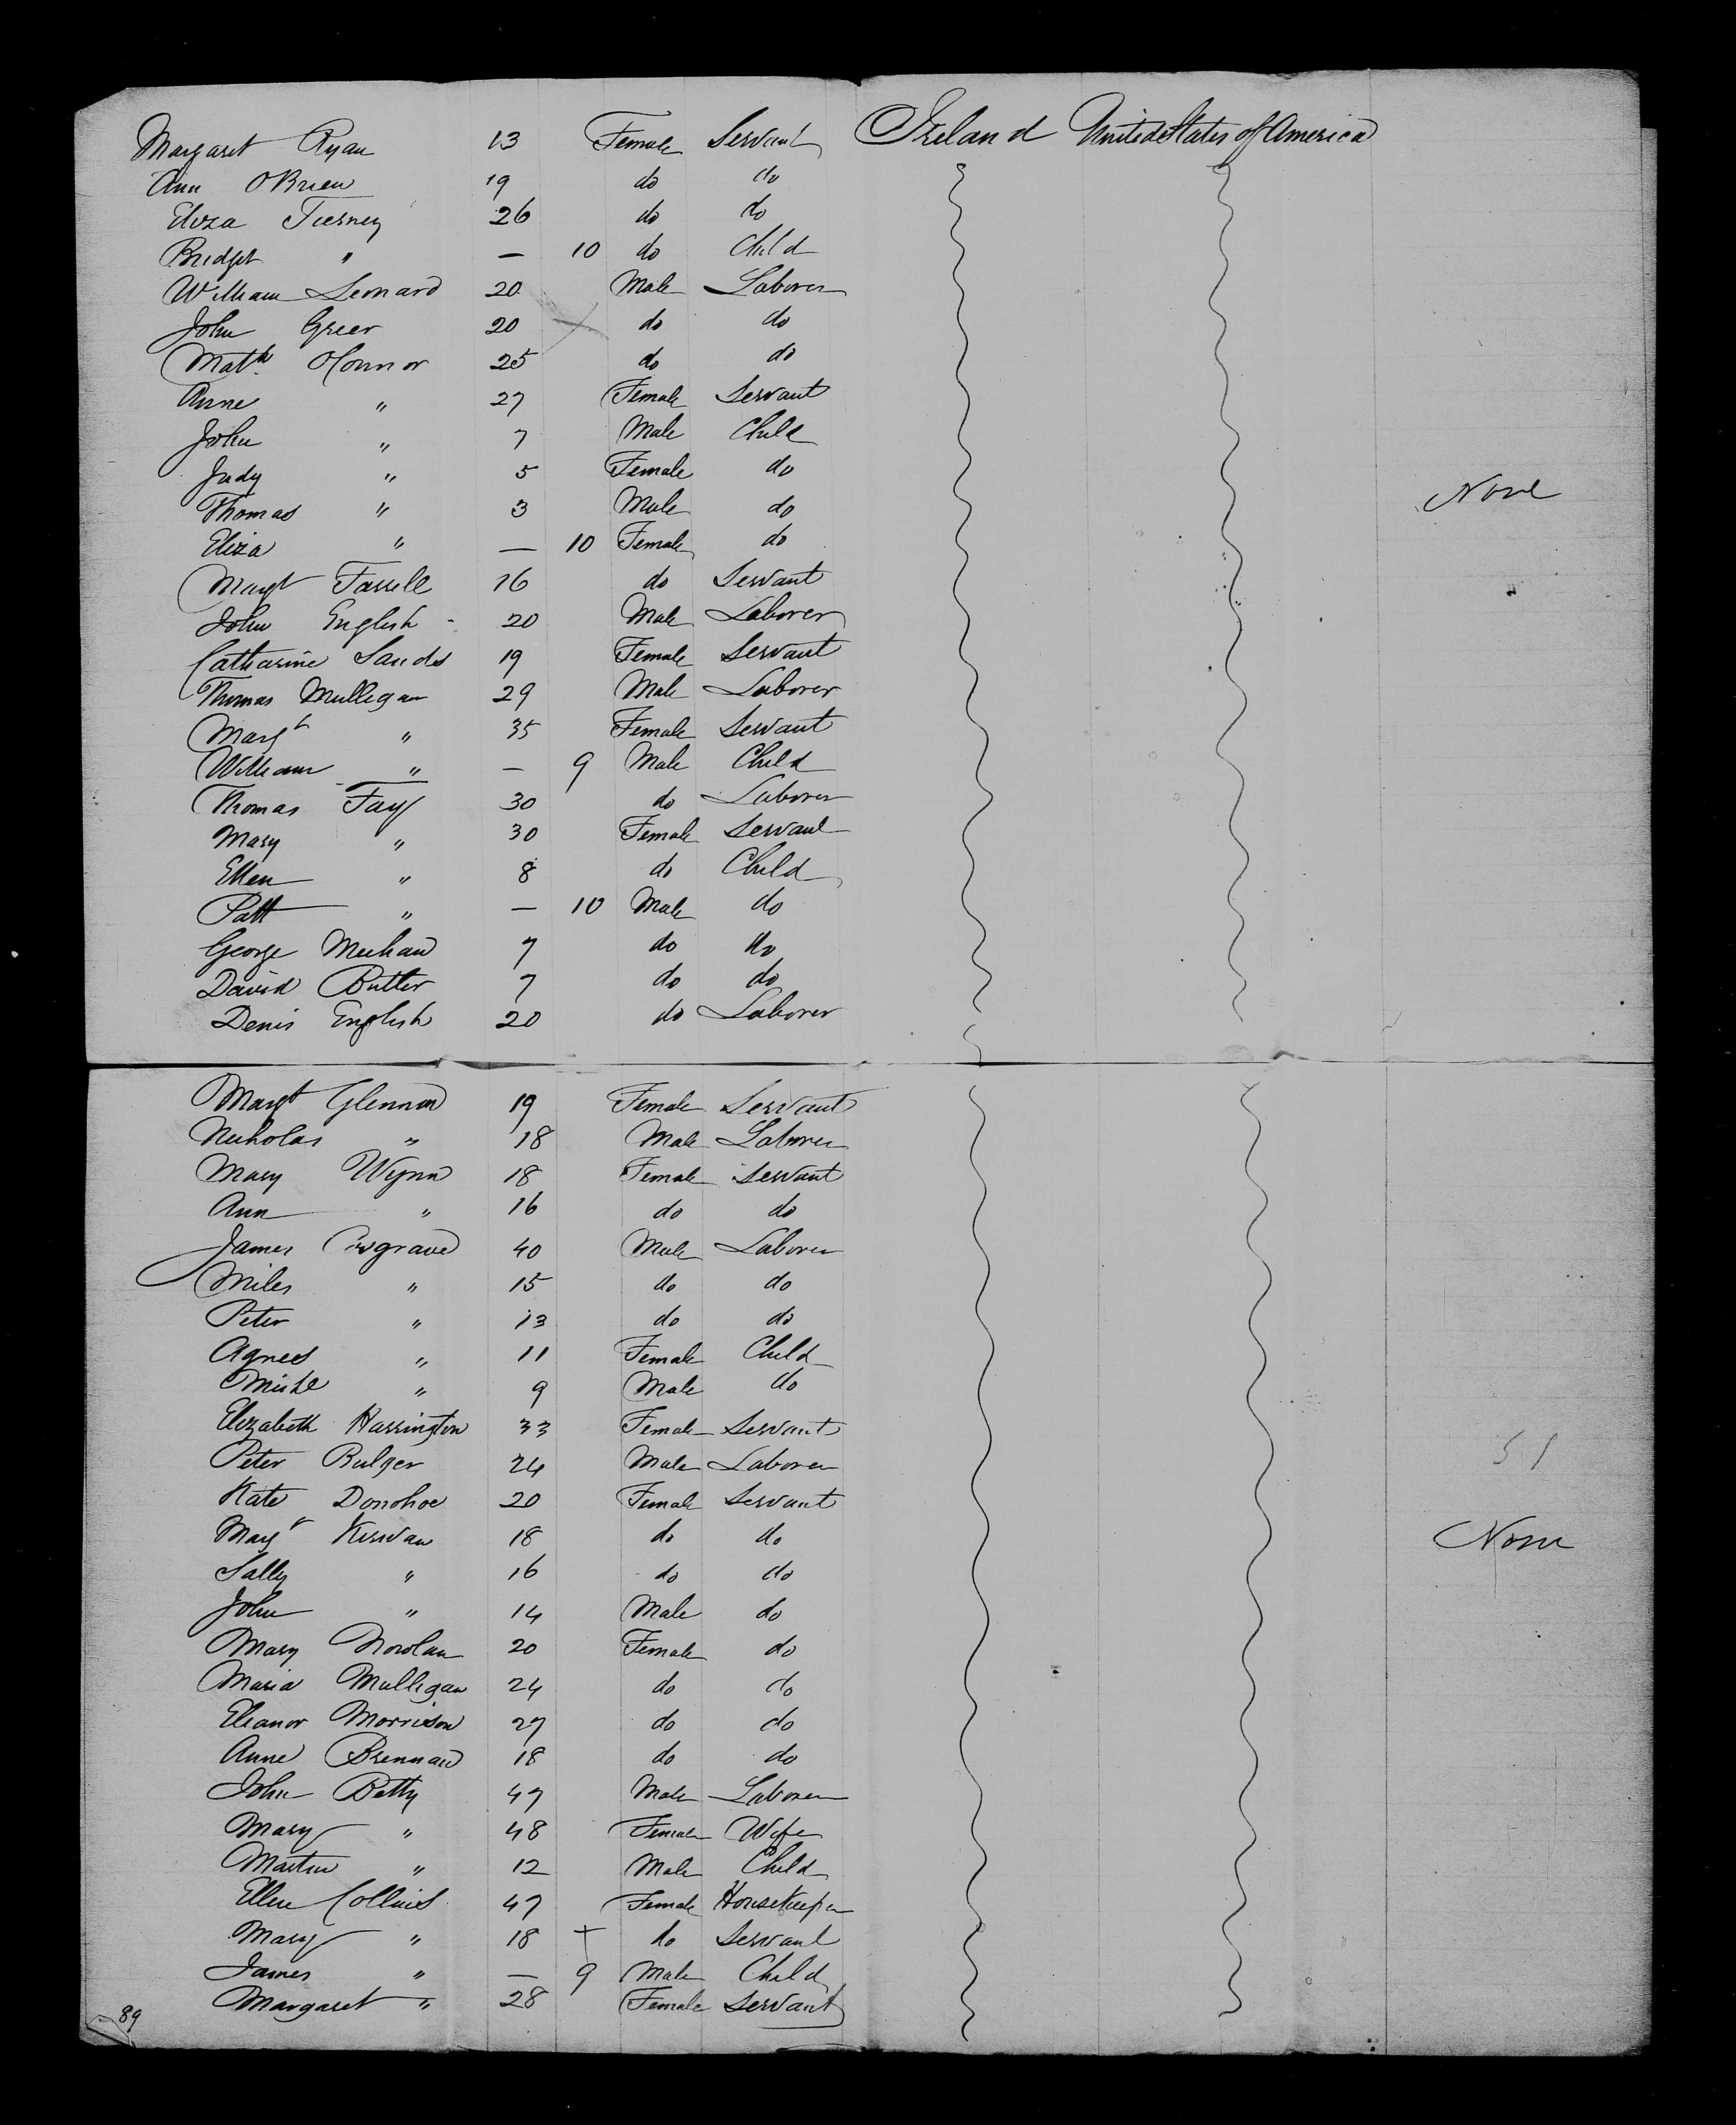 Margaret Ryan 13 Female Servant Ireland United States of America
Ann OBrien 19 do do
Eliza Tierney 26 do do
Bridget " — 10 do Child
William Leonard 20 Male Laborer
John Greer 20 do do
Math OConnor 25 do do
Anne " 27 Female Servant
John " 7 Male Child
Judy " 5 Female do
Thomas " 3 Male do None
Eliza " — 10 Female do
Margt Farrell 16 do Servant
John English 20 Male Laborer
Catharine Sands 19 Female Servant
Thomas Mulligan 29 Male Laborer
Margt " 35 Female Servant
William " — 9 Male Child
Thomas Fay 30 do Laborer
Mary " 30 Female Servant
Ellen " 8 do Child
Patt " — 10 Male do
George Meehan 7 do do
David Butler 7 do do
Denis English 20 do Laborer
Margt Glennon 19 Female Servant
Nicholas " 18 Male Laborer
Mary Wynn 18 Female Servant
Ann " 16 do do
James Cosgrave 40 Male Laborer
Miles " 15 do do
Peter " 13 do do
Agnes " 11 Female Child
Michl " 9 Male do
Elizabeth Harrington 33 Female Servant
Peter Bulger 24 Male Laborer 51
Kate Donohoe 20 Female Servant
Margt Kirwan 18 do do None
Sally " 16 do do
John " 14 Male do
Mary Nowlan 20 Female do
Maria Mulligan 24 do do
Eleanor Morrison 27 do do
Anne Brennan 18 do do
John Betty 47 Male Laborer
Mary " 48 Female Wife
Martin " 12 Male Child
Ellen Collins 47 Female Housekeeper
Mary " 18 + do Servant
James " — 9 Male Child
Margaret " 28 Female Servant
89